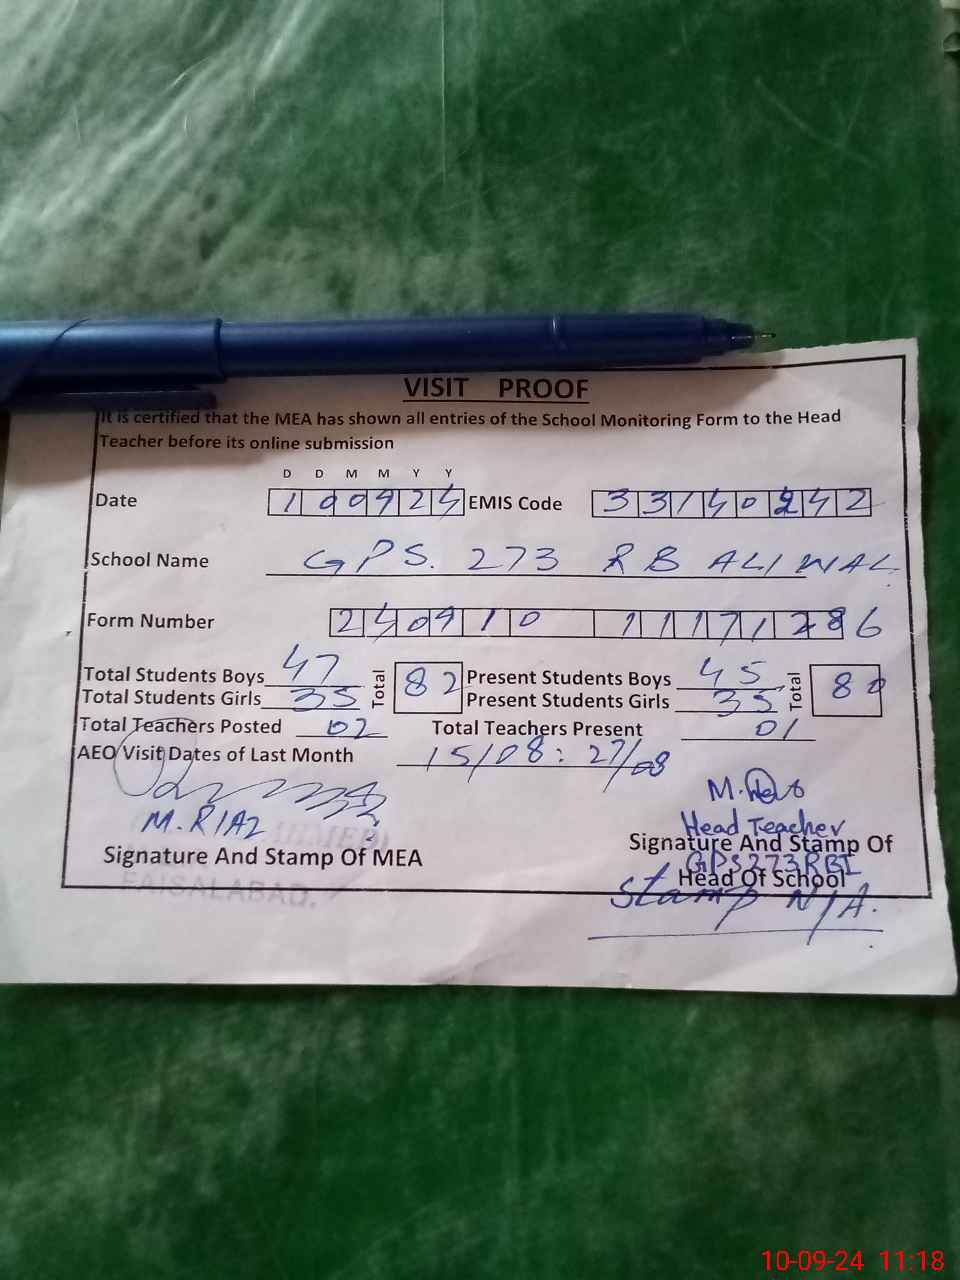 VISIT PROOF
It is certified that the MEA has shown all entries of the School Monitoring Form to the Head
Teacher before its online submission
D D M M Y Y
Date 100924 EMIS Code 33140242
School Name GPS. 273 RB ALIWAL
Form Number 240910 11171286
Total Students Boys 47 Total 82 Present Students Boys 45 Total 80
Total Students Girls 35 Present Students Girls 35
Total Teachers Posted 02 Total Teachers Present 01
AEO Visit Dates of Last Month 15/08: 27/08
M. RIAZ
Signature And Stamp Of MEA
FAISALABAD.
M.
Head Teacher
Signature And Stamp Of
GPS 273 RB I
Head Of School
Stamp N/A.
10-09-24 11:18